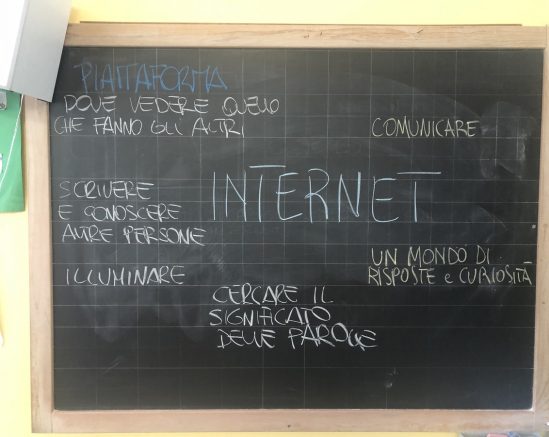 PIATTAFORMA
DOVE VEDERE QUELLO
CHE FANNO GLI ALTRI
COMUNICARE
INTERNET
SCRIVERE
E CONOSCERE
ALTRE PERSONE
ILLUMINARE
UN MONDO DI
RISPOSTE e CURIOSITÀ
CERCARE IL
SIGNIFICATO
DELLE PAROLE